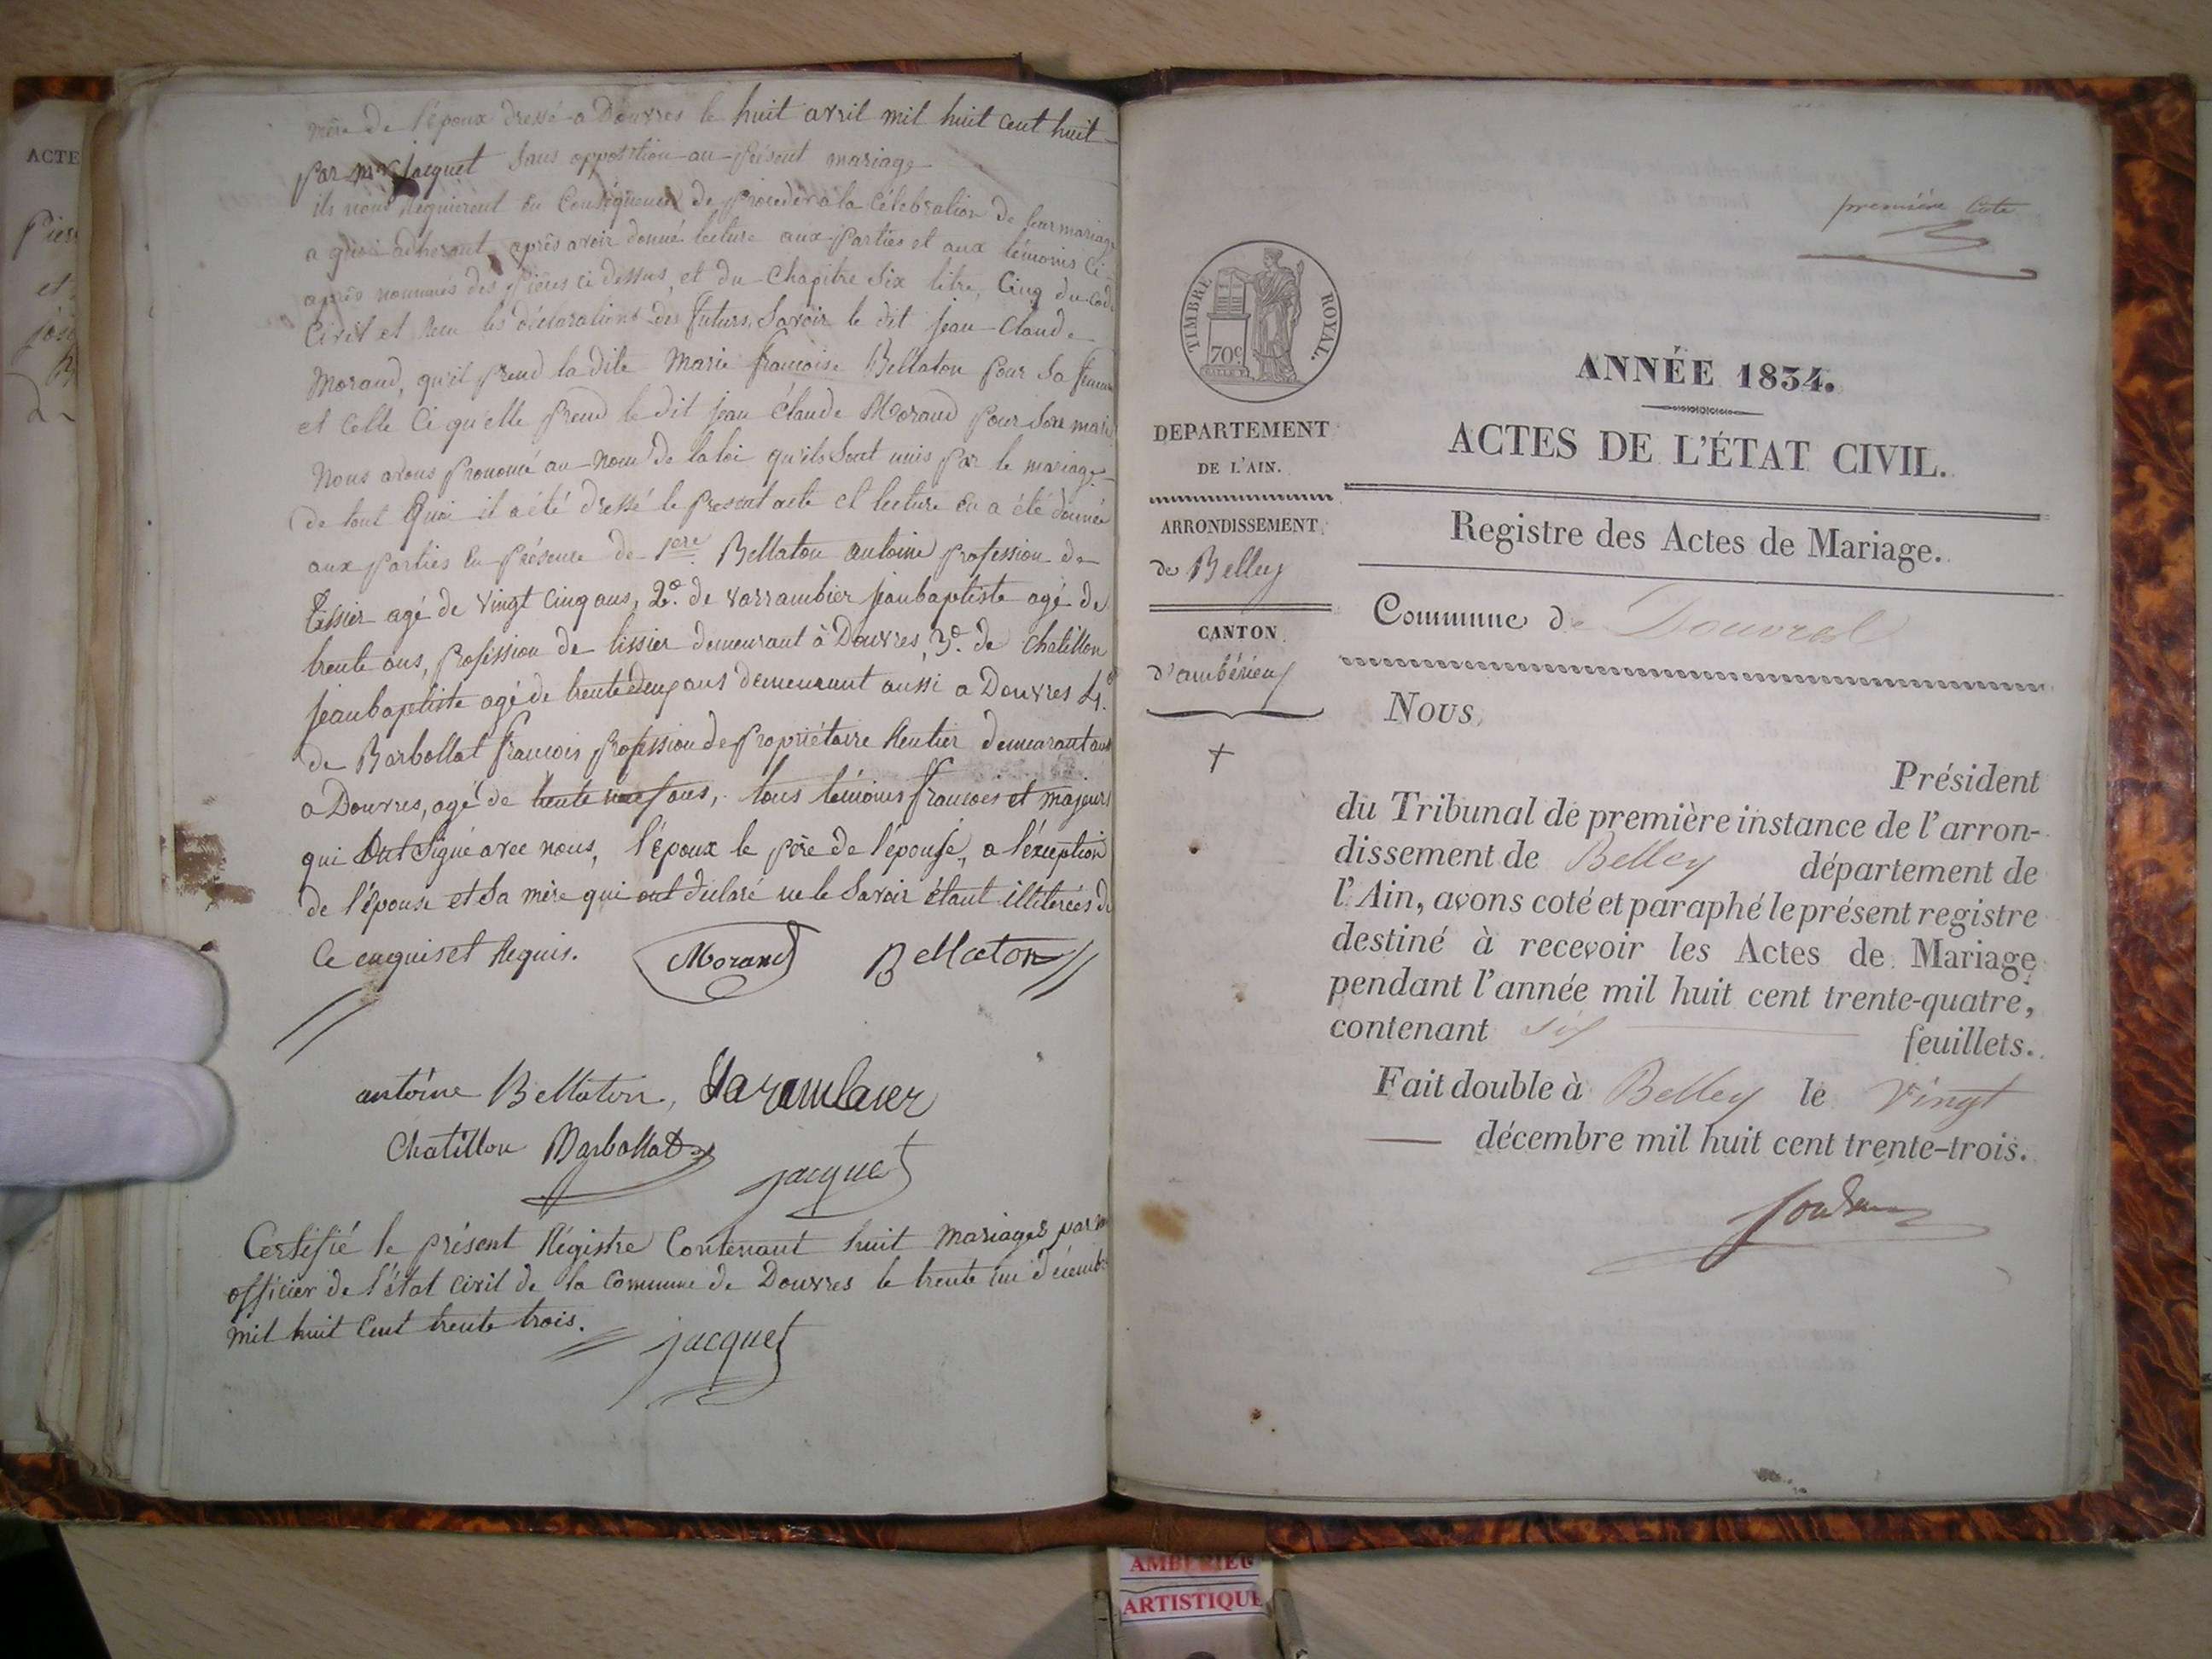 mère de l'époux dressé a Douvres le huit avril mil huit cent huit
par mr jacquet sans opposition au présent mariage
ils nous requierent en conséquence de procéder à la célébration de leur mariage
a quoi adhérant, après avoir donné lecture aux parties et aux témoins ci
après nommés des pièces ci dessus, et du chapitre six titre, cinq du code
civil et reçu les déclarations des futurs, savoir le dit jean Claude
Morand, qu'il prend la dite Marie francoise Bellaton pour sa femme
et celle ci qu'elle prend le dit jean Claude Morand pour son mari
Nous avons prononcé au nom de la loi qu'ils sont unis par le mariage
de tout quoi il a été dressé le present acte et lecture en a été donnée
aux parties en présence de 1ere Bellaton antoine profession de
tissier agé de vingt cinq ans, 2e. de varrambier jeanbaptiste agé de
trente ans, profession de tissier demeurant à Douvres, 3e. de chatillon
jeanbaptiste agé de trente deux ans demeurant aussi a Douvres 4e.
de Barbollat francois profession de propriétaire Rentier demeurant
a Douvres, agé de trente neuf ans, tous témoins francois et majeurs
qui ont signé avec nous, l'époux le père de l'épouse, a l'exception
de l'épouse et sa mère qui ont déclaré ne le savoir étant illiterées de
ce enquis et requis. Morand Bellaton
antoine Bellaton, Varambier
Chatillon Barbollat
jacquet
Certifié le présent Régistre contenant huit mariages par
officier de l'état civil de la commune de Douvres le trente un décembre
mil huit cent trente trois.
jacquet
ACTE
première cote
TIMBRE ROYAL.
70c
ANNÉE 1834.
ACTES DE L'ÉTAT CIVIL.
Registre des Actes de Mariage.
Commune de Douvres
DEPARTEMENT
DE L'AIN.
ARRONDISSEMENT
de Belley
CANTON
d'ambérieu
Nous,
Président
du Tribunal de première instance de l'arron-
dissement de Belley département de
l'Ain, avons coté et paraphé le présent registre
destiné à recevoir les Actes de Mariage
pendant l'année mil huit cent trente-quatre,
contenant six feuillets.
Fait double à Belley le vingt
décembre mil huit cent trente-trois.
AMBERIEU
ARTISTIQUE